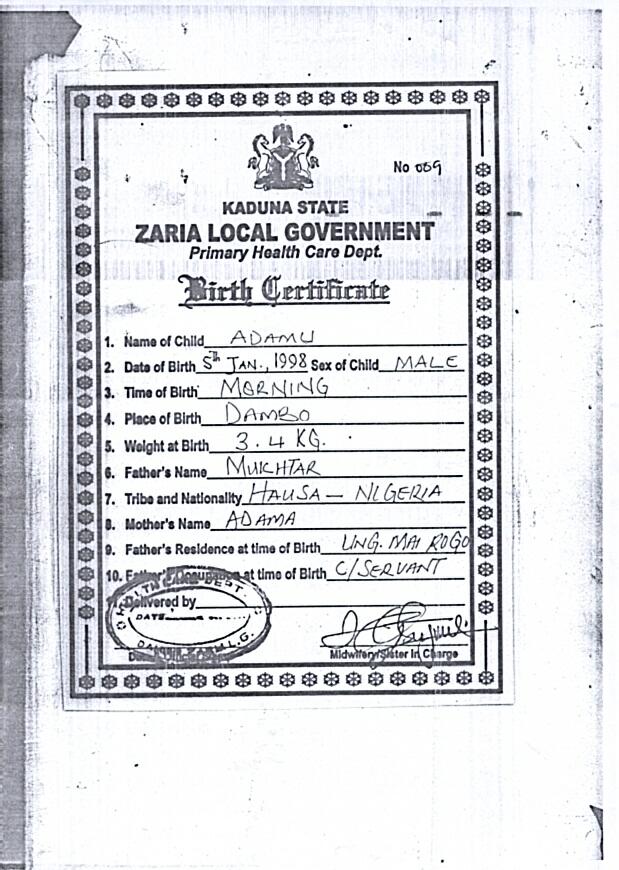 No 059
KADUNA STATE
ZARIA LOCAL GOVERNMENT
Primary Health Care Dept.
Birth Certificate
1. Name of Child ADAMU
2. Date of Birth 5th JAN., 1998 Sex of Child MALE
3. Time of Birth MORNING
4. Place of Birth DAMBO
5. Weight at Birth 3.4 KG.
6. Father's Name MUKHTAR
7. Tribe and Nationality HAUSA - NIGERIA
8. Mother's Name ADAMA
9. Father's Residence at time of Birth UNG. MAI ROGO
10. Father's at time of Birth C/SERVANT
Delivered by
HEALTH DEPT.
DATE
L.G.
Midwifery/Sister in Charge